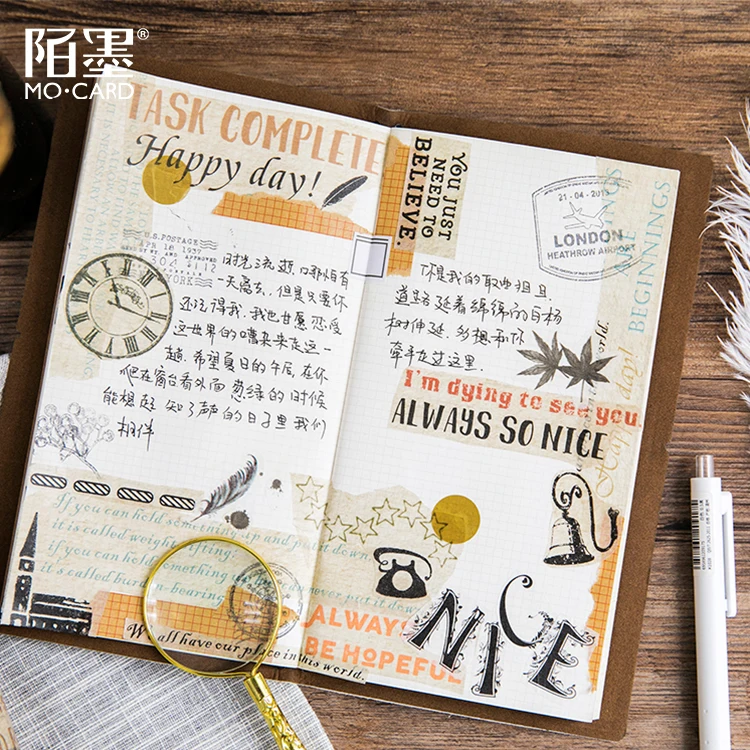 陌墨®
MO·CARD
TASK COMPLETE
Happy day!
U.S.POSTAGE
APR 18 1937
304 4112
YORK
时光流逝 哪怕有
一天离去，但是只要你
还记得我，我也甘愿恋爱
这世界的嘈杂来走这一
趟，希望夏日的午后，在你
爬在窗台看外面葱绿的时候
能想起 知了声的日子里我们
相伴
If you can hold something up and put it down
it is called weight-lifting;
if you can hold something up but can never put it down
it's called burden-bearing
We all have our place in this world.
YOU JUST
NEED TO
BELIEVE.
21-04-2013
LONDON
HEATHROW AIRPORT
BEGINNINGS
你是我的取向狙且
道路延着绵绵的白杨
树伸延，多想和你
牵手走过这里.
Happy day!
I'm dying to see you.
ALWAYS SO NICE
ALWAYS
BE HOPEFUL
NICE